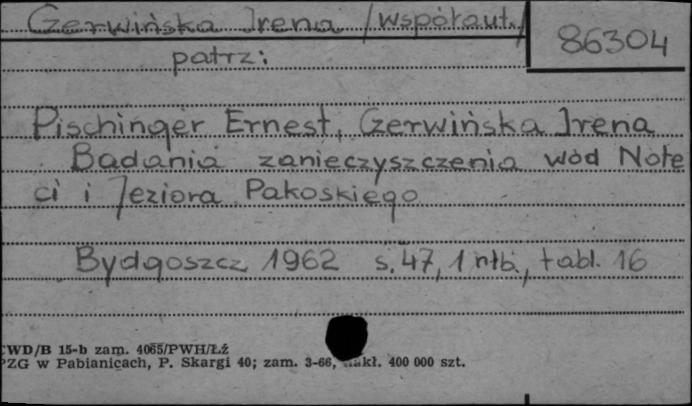 Czerwińska Irena /współaut./
86304
patrz:
Pischinger Ernest, Czerwińska Irena
Badania zanieczyszczenia wód Note
ci i Jeziora Pakoskiego
Bydgoszcz 1962 s. 47, 1 nlb., tabl. 16
WD/B 15-b zam. 4065/PWH/Łź
PZG w Pabianicach, P. Skargi 40; zam. 3-66, nakł. 400 000 szt.